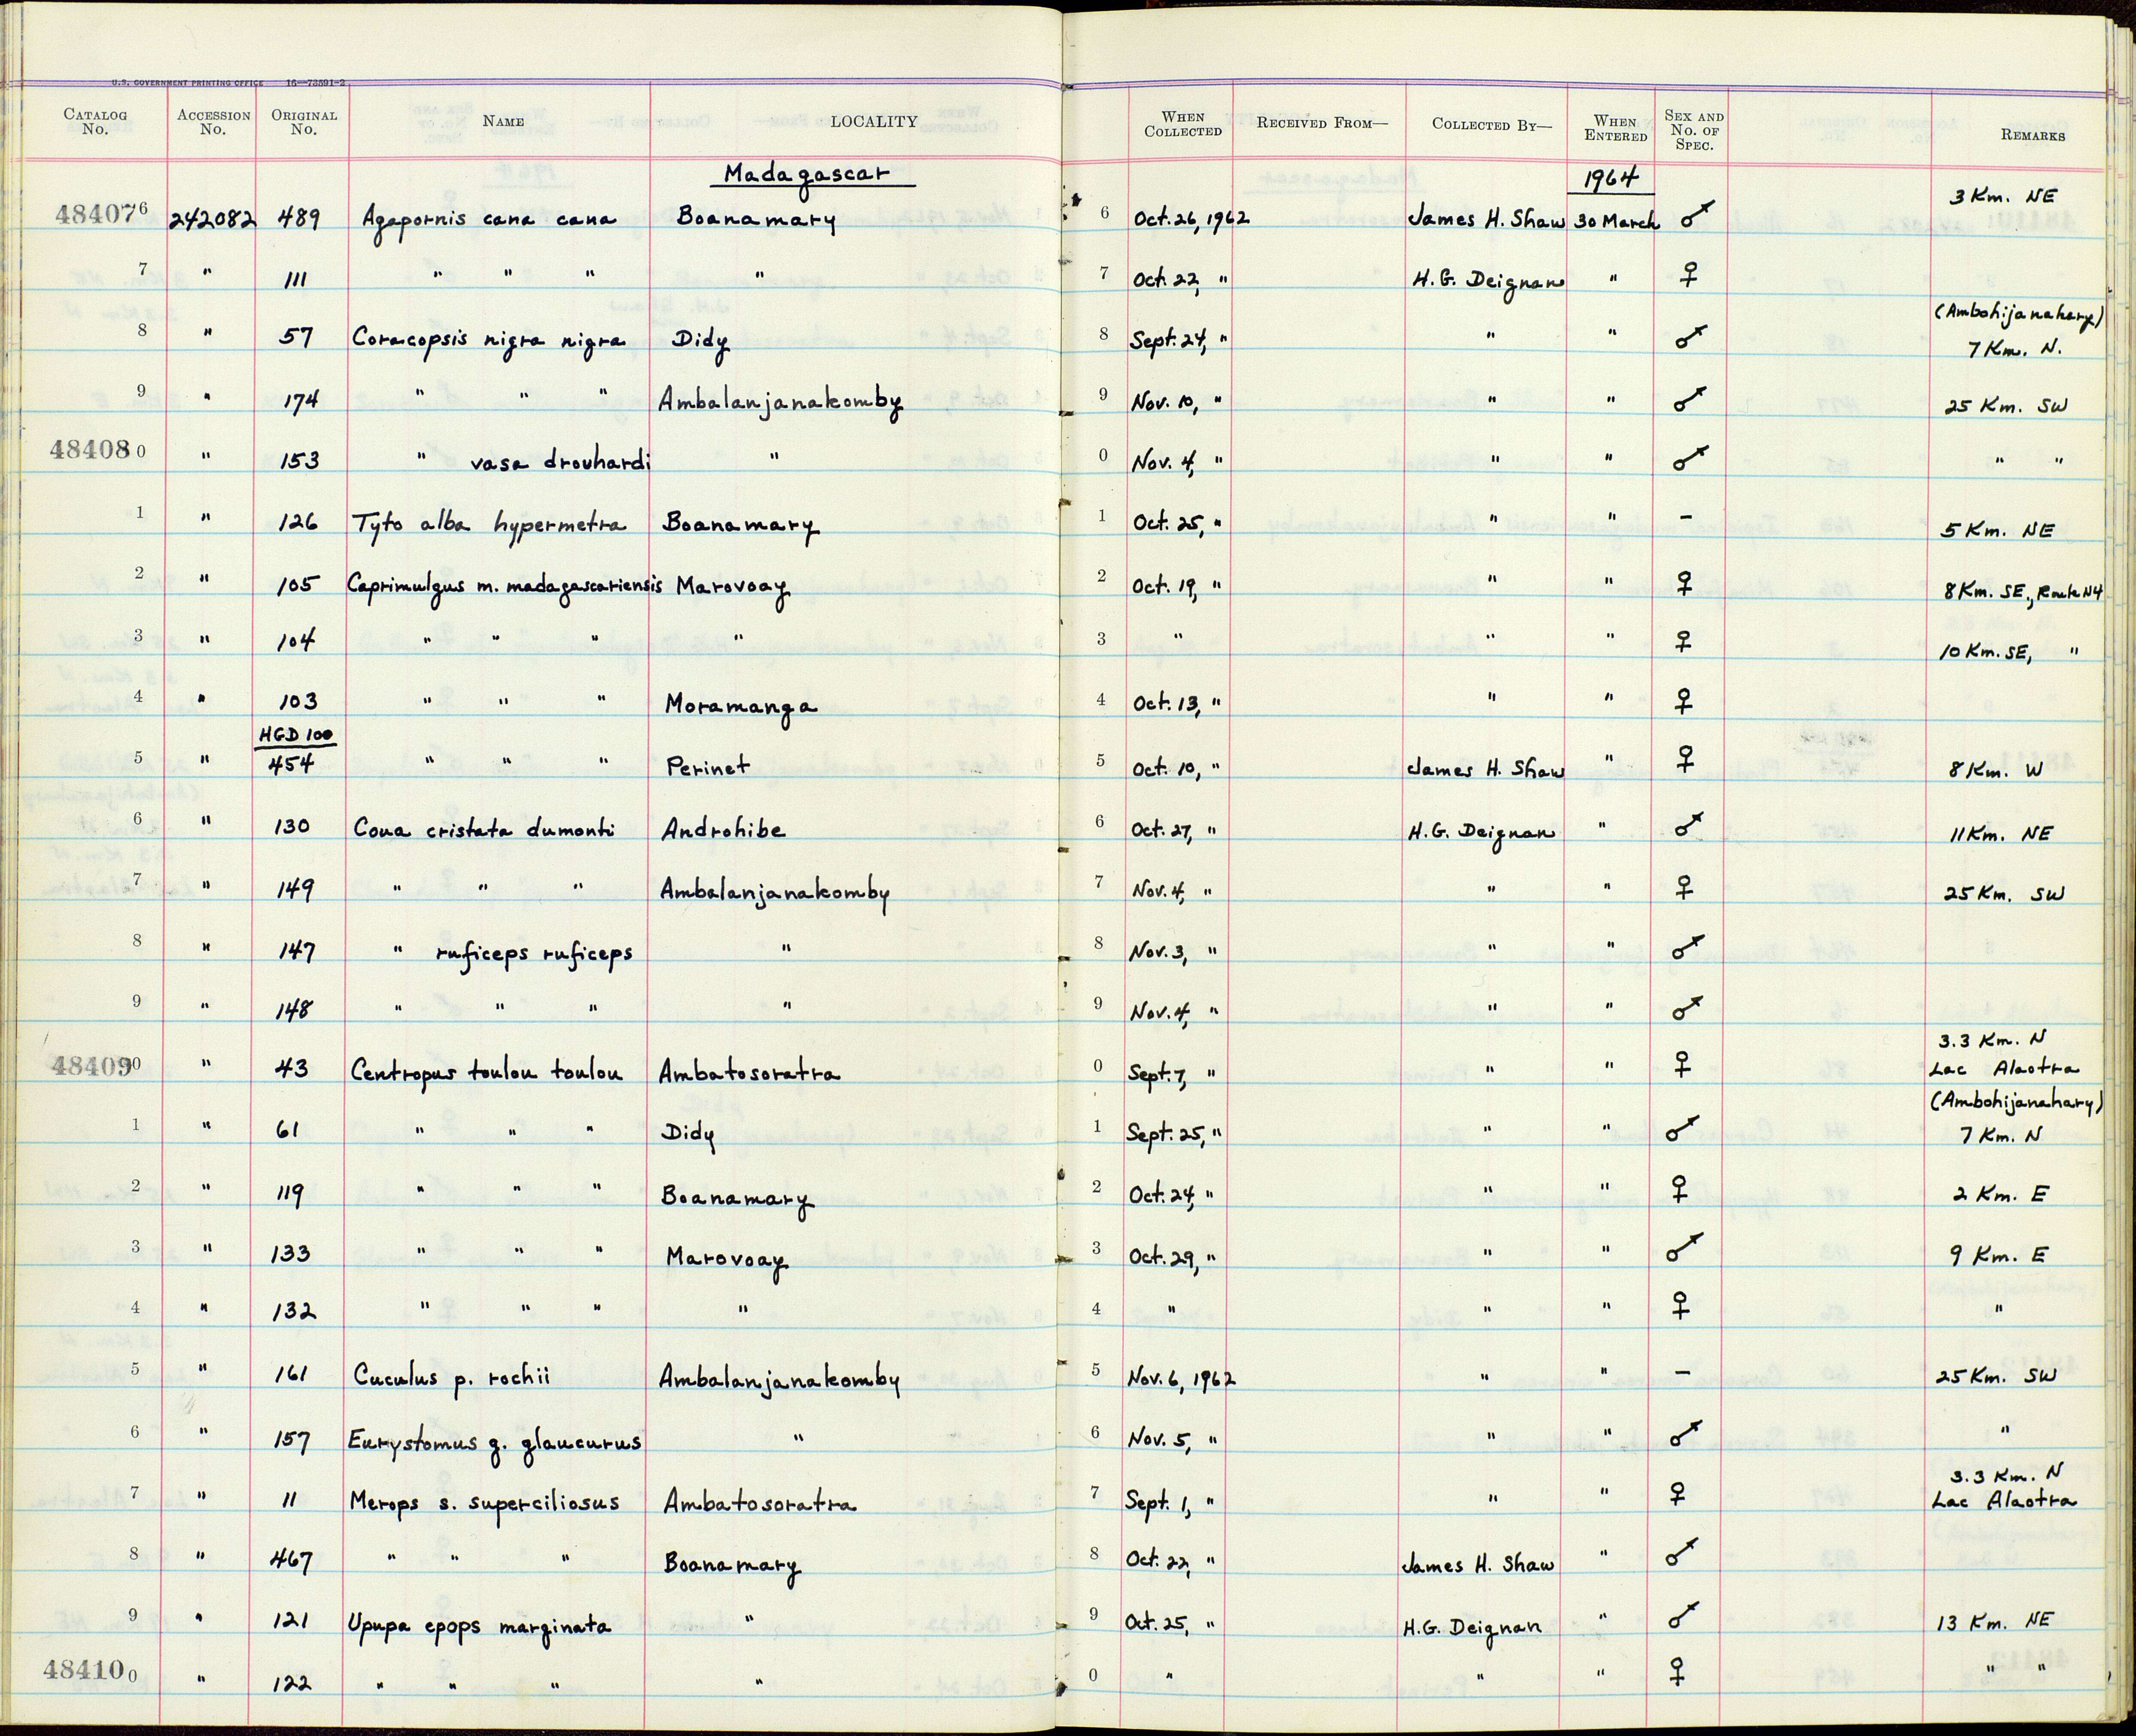 U.S. GOVERNMENT PRINTING OFFICE 16—73591-2
CATALOG No. ACCESSION No. ORIGINAL No. NAME LOCALITY WHEN COLLECTED RECEIVED FROM— COLLECTED BY— WHEN ENTERED SEX AND No. OF SPEC. REMARKS
Madagascar 1964
484076 242082 489 Agapornis cana cana Boanamary 6 Oct. 26, 1962 James H. Shaw 30 March ♂ 3 Km. NE
7 " 111 " " " " 7 Oct. 22, " H.G. Deignan " ♀
8 " 57 Coracopsis nigra nigra Didy 8 Sept. 24, " " " ♂ (Ambohijanahary) 7 Km. N.
9 " 174 " " " Ambalanjanakomby 9 Nov. 10, " " " ♂ 25 Km. SW
484080 " 153 " vasa drouhardi " 0 Nov. 4, " " " ♂ " "
1 " 126 Tyto alba hypermetra Boanamary 1 Oct. 25, " " " – 5 Km. NE
2 " 105 Caprimulgus m. madagascariensis Marovoay 2 Oct. 19, " " " ♀ 8 Km. SE., Route N4
3 " 104 " " " " 3 " " " ♀ 10 Km. SE, "
4 " 103 " " " Moramanga 4 Oct. 13, " " " ♀
HGD 100
5 " 454 " " " Perinet 5 Oct. 10, " James H. Shaw " ♀ 8 Km. W
6 " 130 Coua cristata dumonti Androhibe 6 Oct. 27, " H.G. Deignan " ♂ 11 Km. NE
7 " 149 " " " Ambalanjanakomby 7 Nov. 4, " " " ♀ 25 Km. SW
8 " 147 " ruficeps ruficeps " 8 Nov. 3, " " " ♂
9 " 148 " " " " 9 Nov. 4, " " " ♂
484090 " 43 Centropus toulou toulou Ambatosoratra 0 Sept. 7, " " " ♀ 3.3 Km. N Lac Alaotra
1 " 61 " " " Didy 1 Sept. 25, " " " ♂ (Ambohijanahary) 7 Km. N
2 " 119 " " " Boanamary 2 Oct. 24, " " " ♀ 2 Km. E
3 " 133 " " " Marovoay 3 Oct. 29, " " " ♂ 9 Km. E
4 " 132 " " " " 4 " " " ♀ "
5 " 161 Cuculus p. rochii Ambalanjanakomby 5 Nov. 6, 1962 " " – 25 Km. SW
6 " 157 Eurystomus g. glaucurus " 6 Nov. 5, " " " ♂ "
7 " 11 Merops s. superciliosus Ambatosoratra 7 Sept. 1, " " " ♀ 3.3 Km. N Lac Alaotra
8 " 467 " " " Boanamary 8 Oct. 22, " James H. Shaw " ♂
9 " 121 Upupa epops marginata " 9 Oct. 25, " H.G. Deignan " ♂ 13 Km. NE
484100 " 122 " " " " 0 " " " ♀ " "